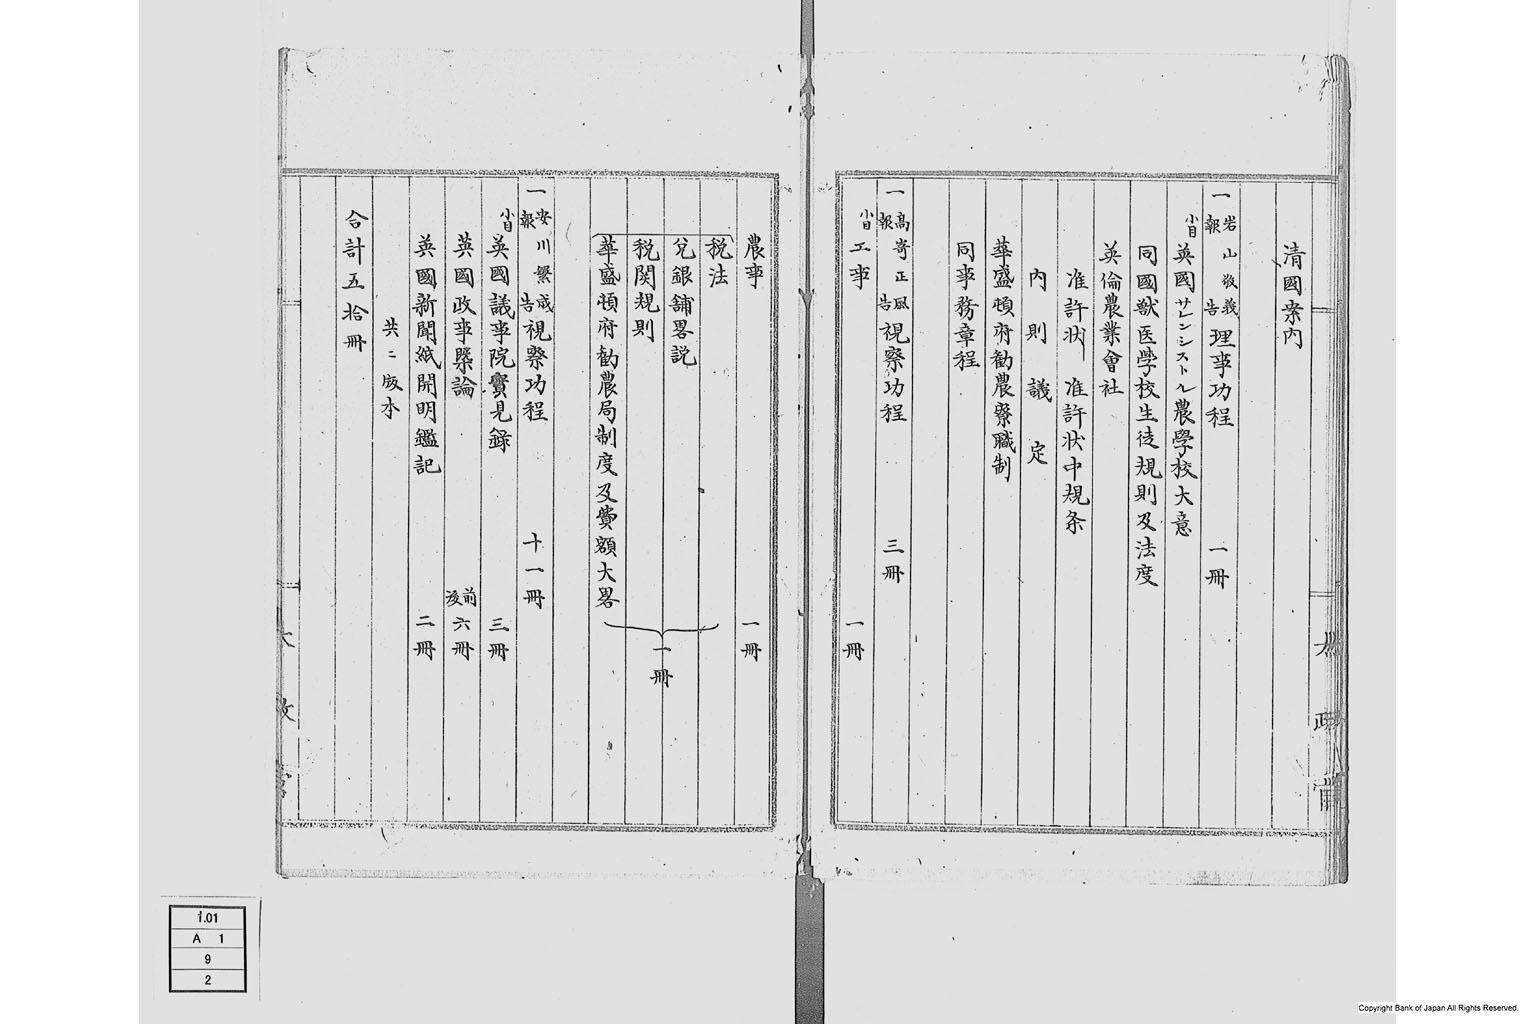 清國案内
一 岩山敬義報告 理事功程 一冊
小目 英國サレンシストル農學校大意
同國獣医学校生徒規則及法度
英倫農業會社
准許状 准許状中規条
内則議定
華盛頓府勧農寮職制
同事務章程
一 高寄正風報告 視察功程 三冊
小目 工事 一冊
農事 一冊
税法
兌銀舗畧説
税関規則
華盛頓府勧農局制度及費額大畧
一冊
一 安川繁成報告 視察功程 十一冊
小目 英國議事院實見録 三冊
英國政事槩論 前後 六冊
英國新聞紙開明鑑記 二冊
共ニ版本
合計五拾冊
太政官
1.01
A 1
9
2
Copyright Bank of Japan All Rights Reserved.